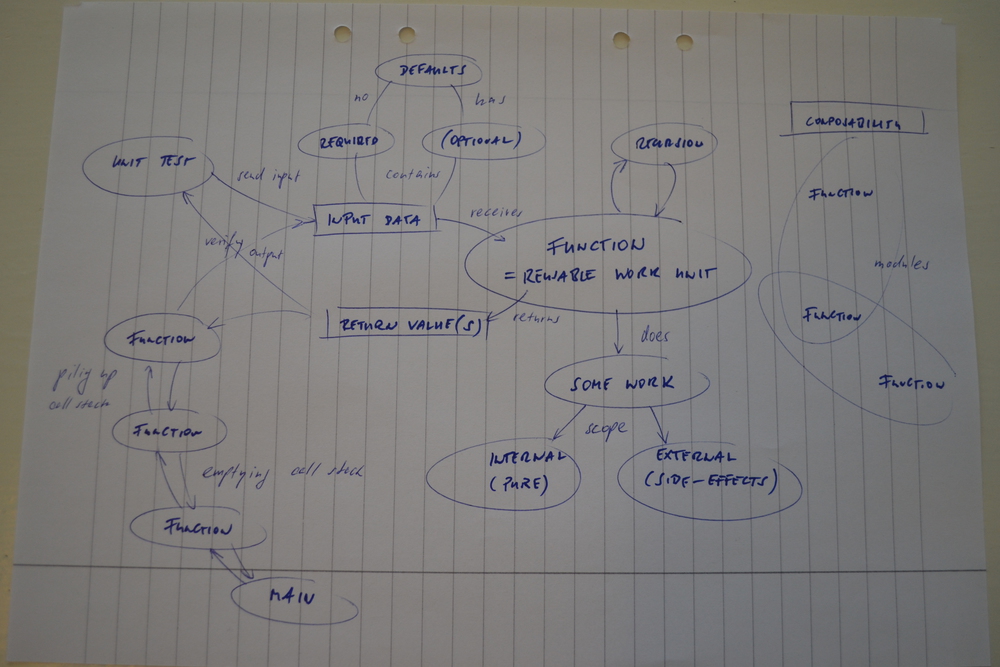 DEFAULTS
no
has
REQUIRED
(OPTIONAL)
contains
UNIT TEST
send input
INPUT DATA
receives
verify output
RECURSION
FUNCTION
= REUSABLE WORK UNIT
returns
RETURN VALUE(S)
does
SOME WORK
scope
INTERNAL
(PURE)
EXTERNAL
(SIDE-EFFECTS)
FUNCTION
piling up
call stack
FUNCTION
emptying call stack
FUNCTION
MAIN
COMPOSABILITY
FUNCTION
modules
FUNCTION
FUNCTION